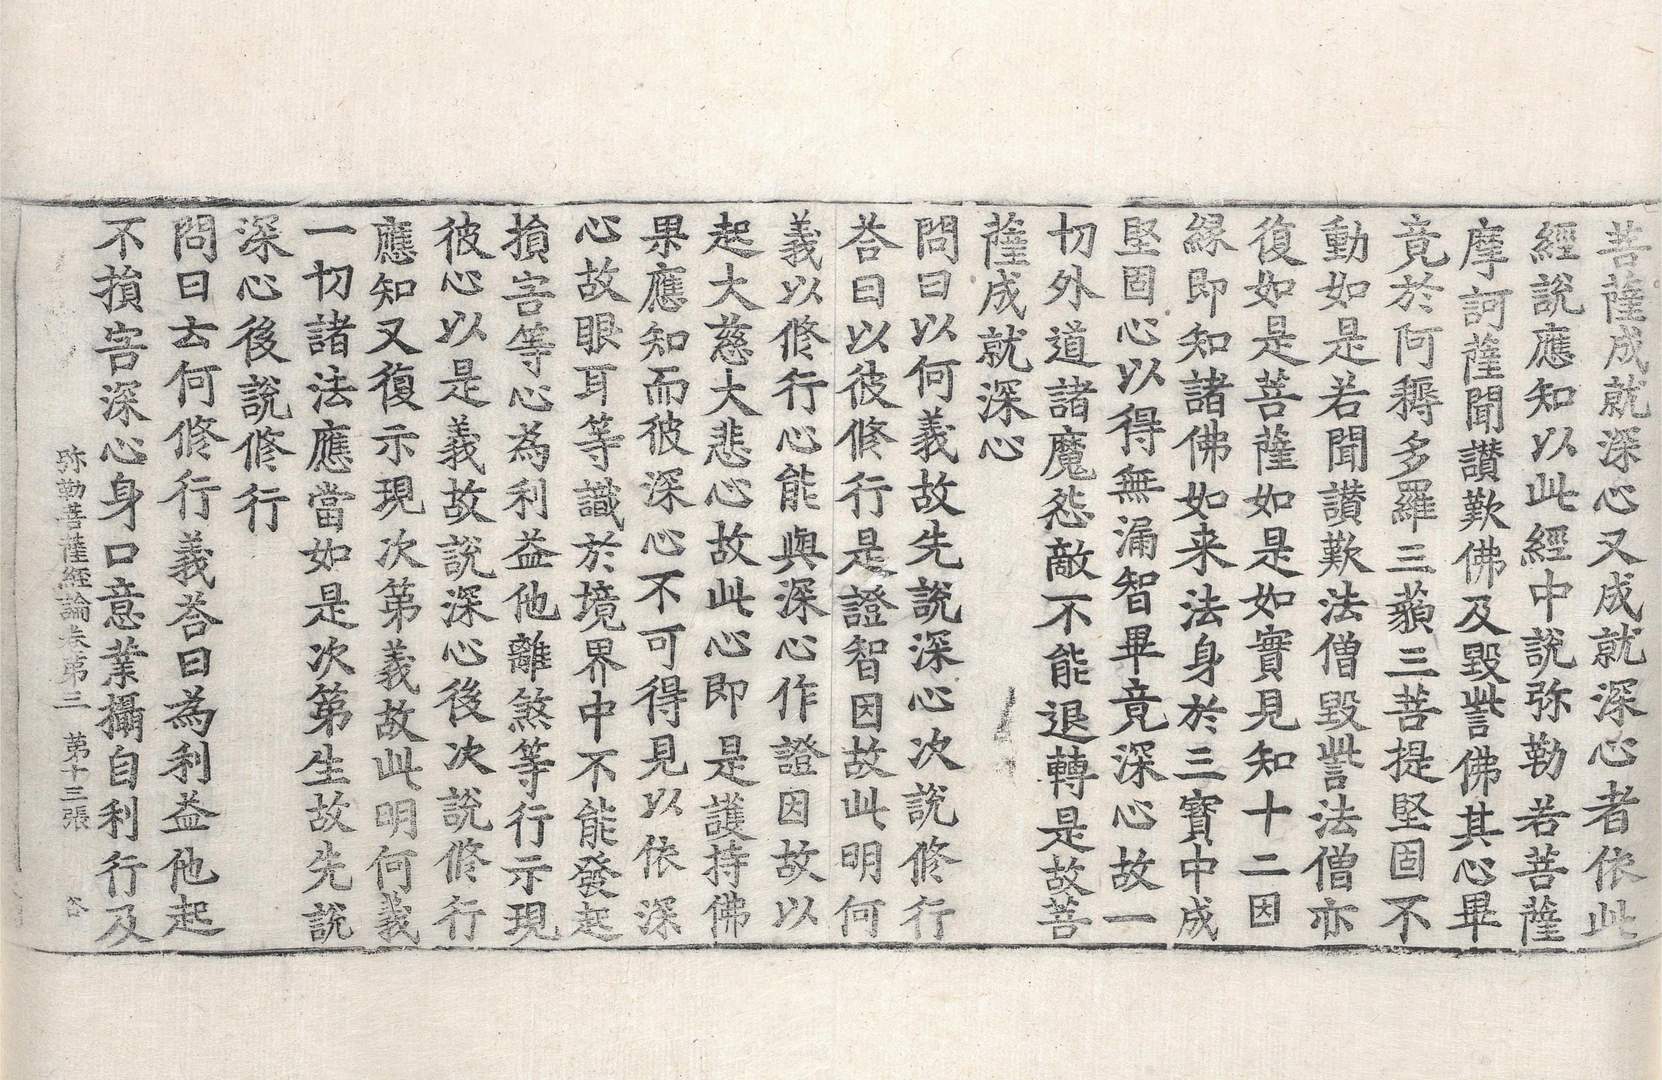 菩薩成就深心又成就深心者依此
經說應知以此經中說弥勒若菩薩
摩訶薩聞讃歎佛及毀訾佛其心畢
竟於阿耨多羅三藐三菩提堅固不
動如是若聞讃歎法僧毀訾法僧亦
復如是菩薩如是如實見知十二因
緣即知諸佛如来法身於三寶中成
堅固心以得無漏智畢竟深心故一
切外道諸魔怨敵不能退轉是故菩
薩成就深心
問曰以何義故先說深心次說修行
荅曰以彼修行是證智因故此明何
義以修行心能與深心作證因故以
起大慈大悲心故此心即是護持佛
果應知而彼深心不可得見以依深
心故眼耳等識於境界中不能發起
損害等心為利益他離煞等行示現
彼心以是義故說深心後次說修行
應知又復示現次第義故此明何義
一切諸法應當如是次第生故先說
深心後說修行
問曰云何修行義荅曰為利益他起
不損害深心身口意業攝自利行及
弥勒菩薩經論卷第三 第十三張 荅